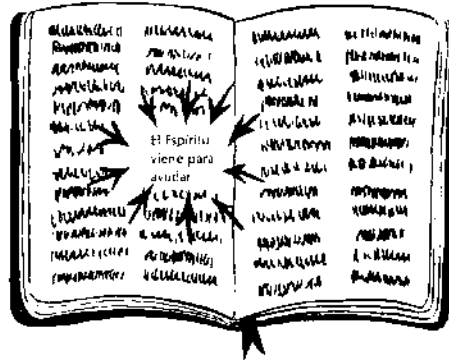 El Espíritu
viene para
ayudar